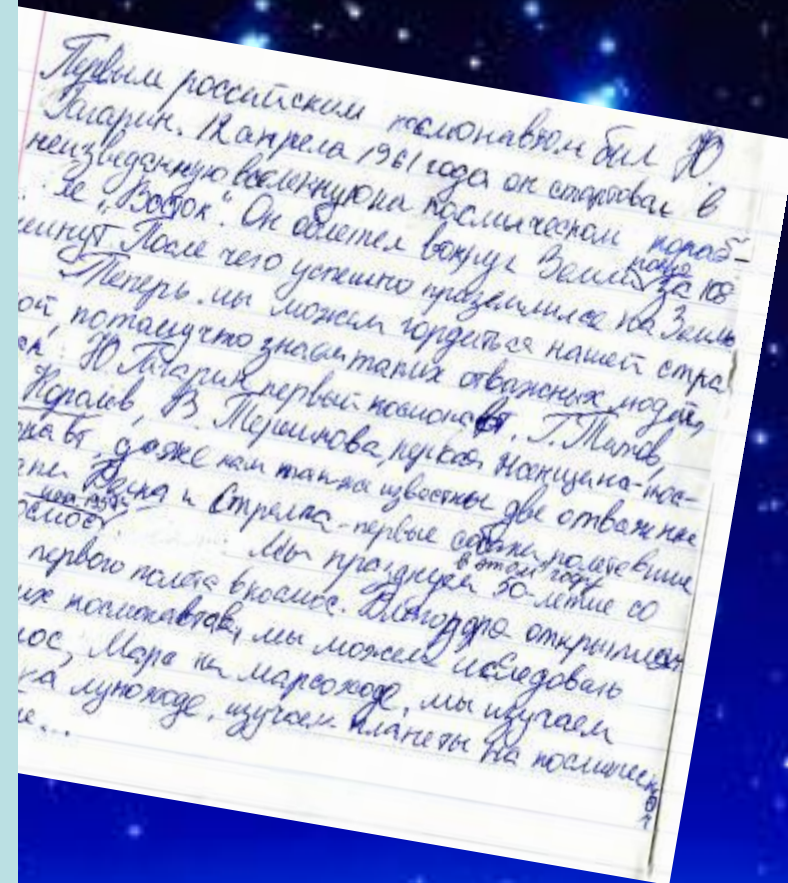 Первым российским космонавтом был Ю.
Гагарин. 12 апреля 1961 года он стартовал в
неизведанную вселенную на космическом кораб-
ле „Восток". Он облетел вокруг Земли за 108
минут После чего успешно приземлился на Землю
Теперь мы можем гордиться нашей стра
ой, потому что знаем таких отважных людей,
ак: Ю Гагарин первый космонавт, Г. Титов,
Королев, В. Терешкова, первая женщина-кос-
навт, даже нам также известны две отважные
Белка и Стрелка - первые собаки полетевшие
осмос. Мы празднуем в этом году 50-летие со
первого полета в космос. Благодаря открытиям
их космонавтов, мы можем исследовать
мос, Марс на марсоходе, мы изучаем
на луноходе, изучаем планеты на космическ
е...